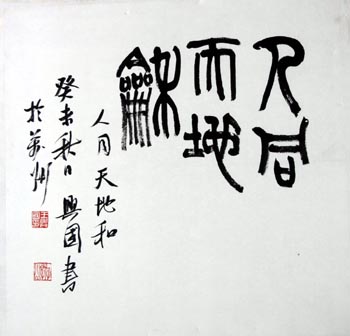 人同
天地
龢
人同天地和
癸未秋日興國書
於萬州